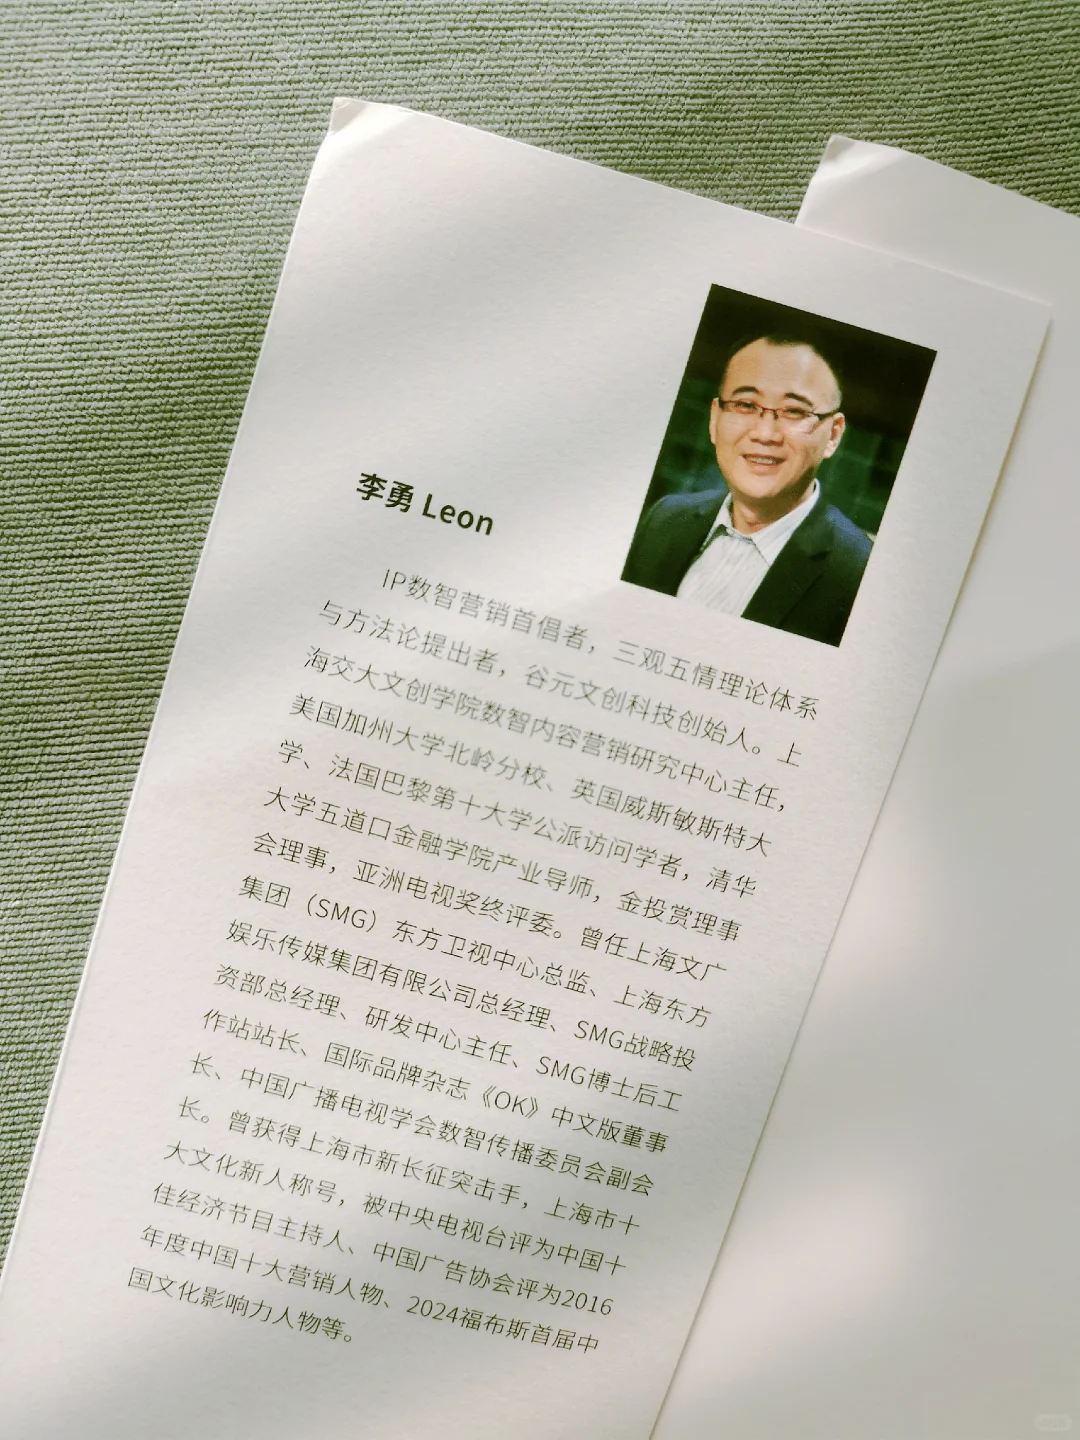 李勇 Leon
IP数智营销首倡者，三观五情理论体系
与方法论提出者，谷元文创科技创始人。上
海交大文创学院数智内容营销研究中心主任，
美国加州大学北岭分校、英国威斯敏斯特大
学、法国巴黎第十大学公派访问学者，清华
大学五道口金融学院产业导师，金投赏理事
会理事，亚洲电视奖终评委。曾任上海文广
集团（SMG）东方卫视中心总监、上海东方
娱乐传媒集团有限公司总经理、SMG战略投
资部总经理、研发中心主任、SMG博士后工
作站站长、国际品牌杂志《OK》中文版董事
长、中国广播电视学会数智传播委员会副会
长。曾获得上海市新长征突击手，上海市十
大文化新人称号，被中央电视台评为中国十
佳经济节目主持人、中国广告协会评为2016
年度中国十大营销人物、2024福布斯首届中
国文化影响力人物等。